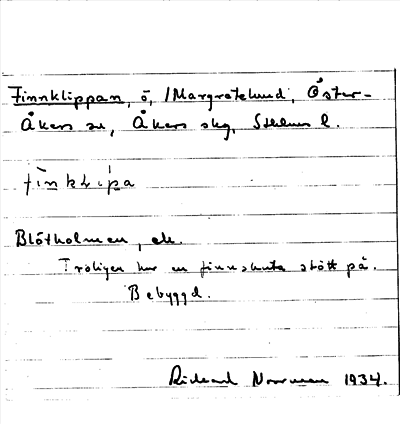 Finnklippan, ö, /Margretelund, Öster-
Åkers sn, Åkers skg, Sthlms l.
finkLipa
Blötholmen, ek.
Troligen har en finnskuta stött på.
Bebyggd.
Rickard Norrman 1934.